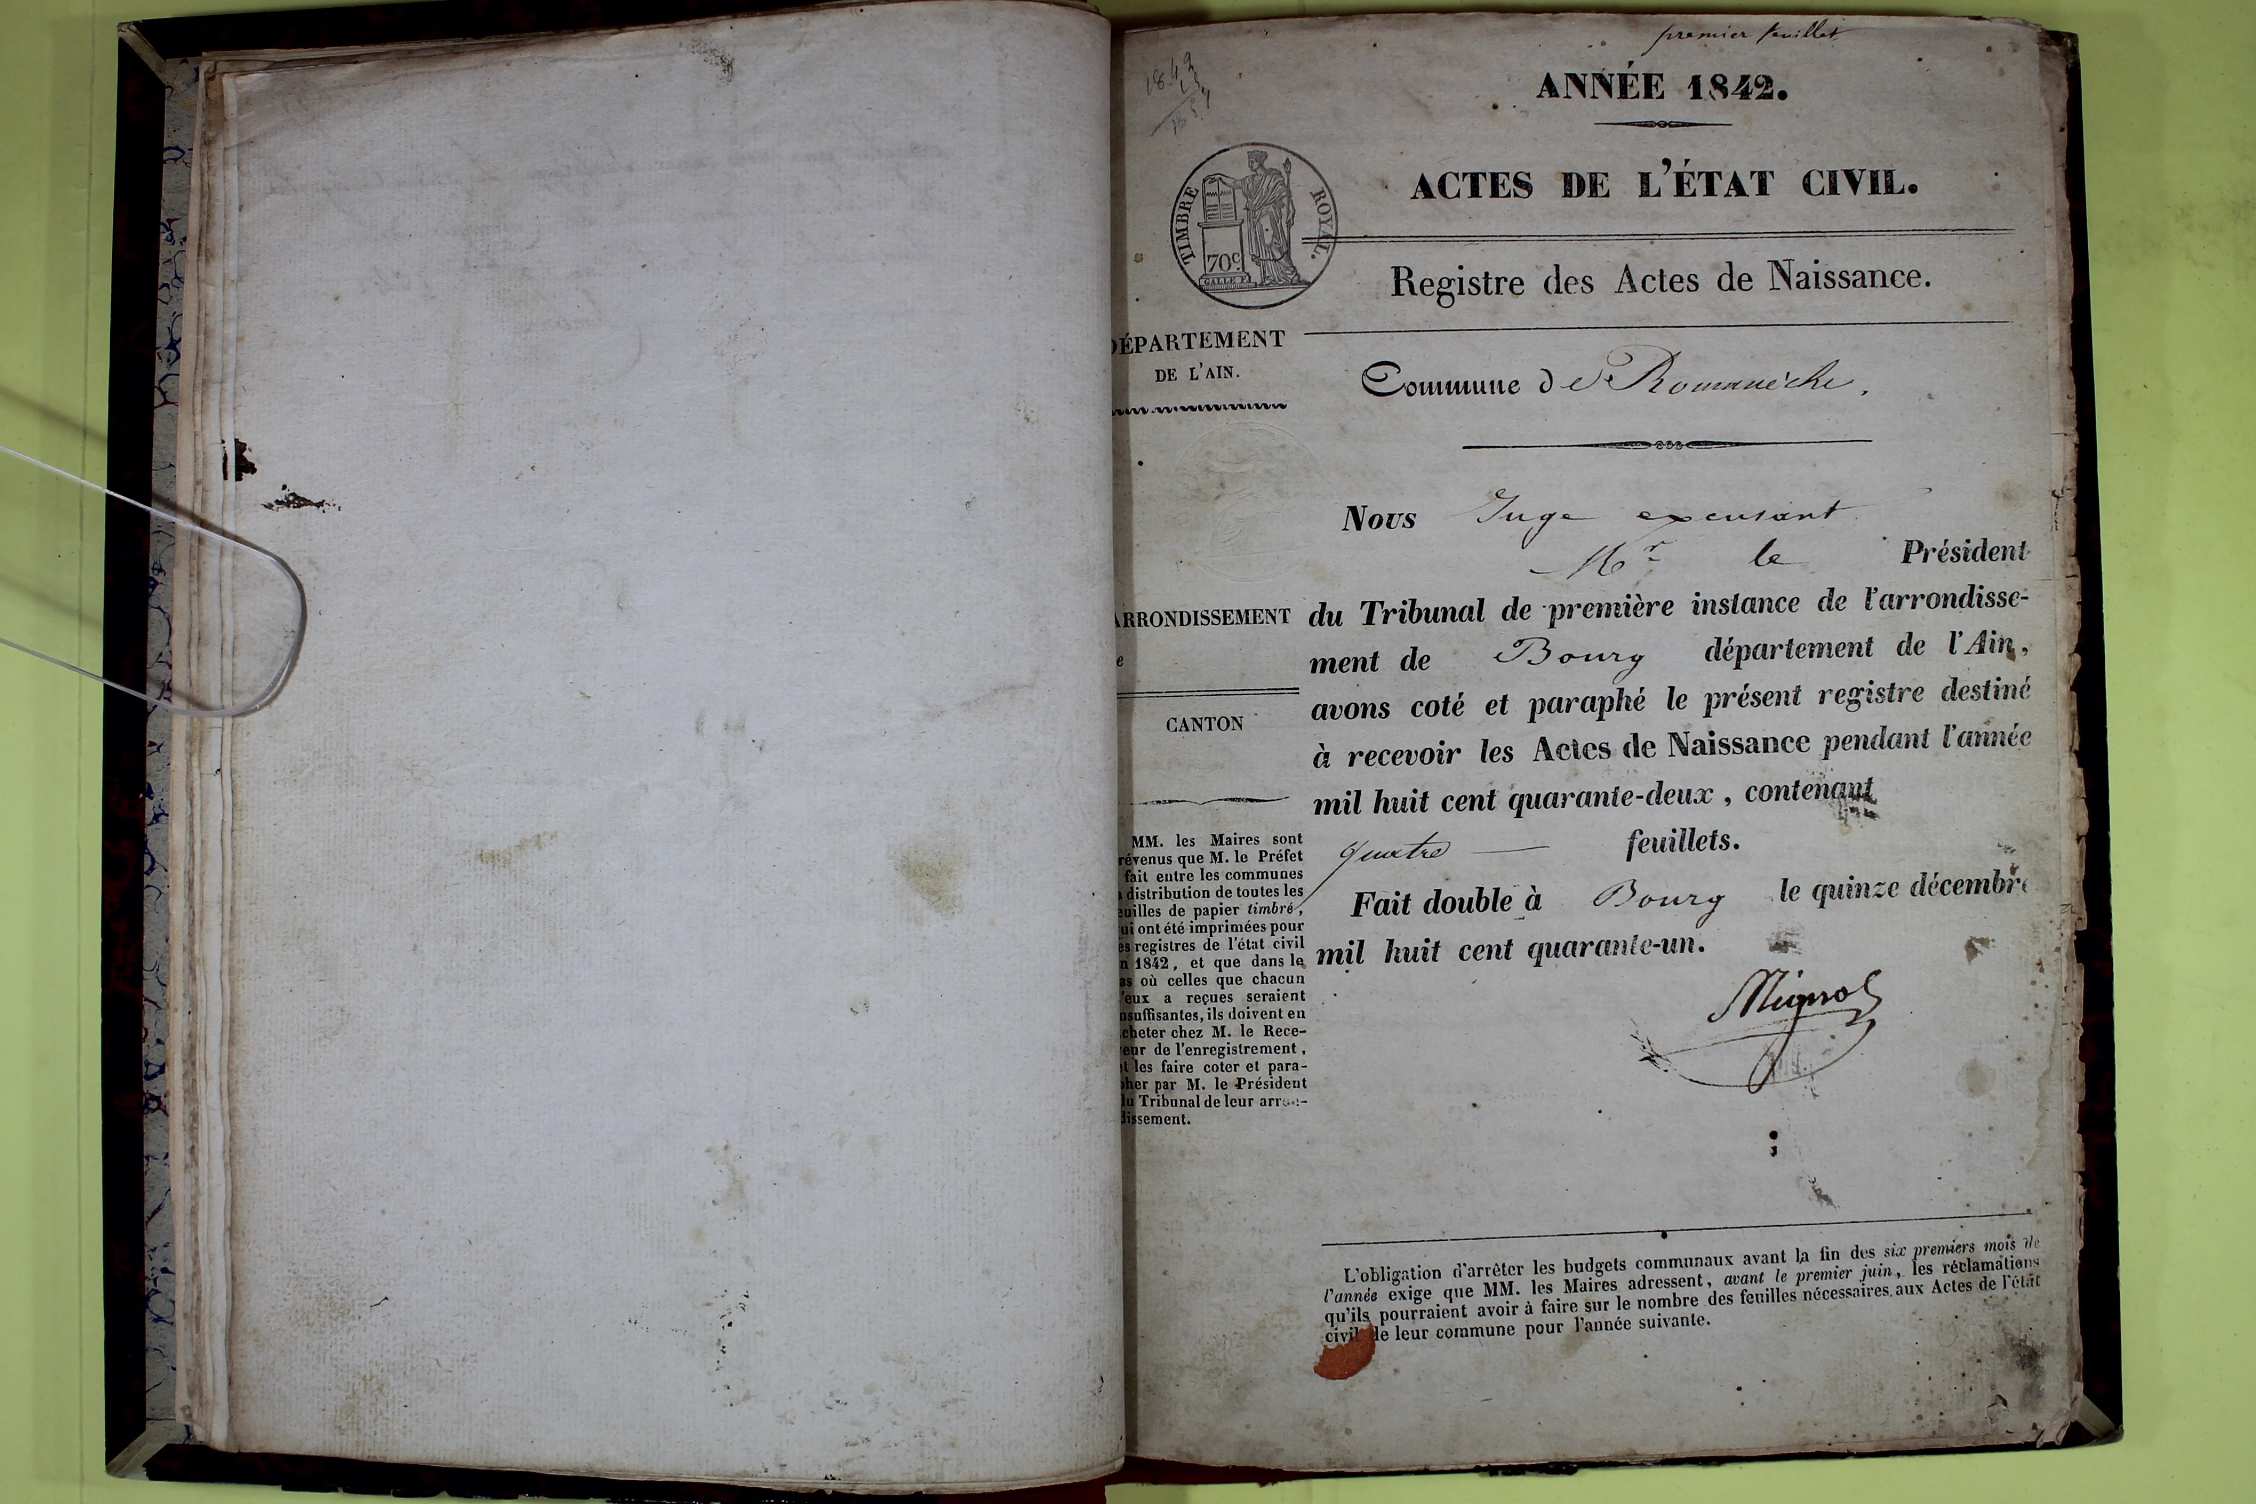 premier feuillet
ANNÉE 1842.
ACTES DE L'ÉTAT CIVIL.
TIMBRE ROYAL.
70c
Registre des Actes de Naissance.
DÉPARTEMENT
DE L'AIN.
Commune de Romanèche.
Nous Juge excusant
Mr le Président
du Tribunal de première instance de l'arrondisse-
ment de Bourg département de l'Ain,
avons coté et paraphé le présent registre destiné
à recevoir les Actes de Naissance pendant l'année
mil huit cent quarante-deux, contenant
quatre feuillets.
Fait double à Bourg le quinze décembre
mil huit cent quarante-un.
ARRONDISSEMENT
e
CANTON
MM. les Maires sont
révenus que M. le Préfet
fait entre les communes
a distribution de toutes les
euilles de papier timbré,
ui ont été imprimées pour
es registres de l'état civil
n 1842, et que dans le
as où celles que chacun
'eux a reçues seraient
nsuffisantes, ils doivent en
cheter chez M. le Rece-
eur de l'enregistrement,
et les faire coter et para-
pher par M. le Président
du Tribunal de leur arron-
dissement.
L'obligation d'arrêter les budgets communaux avant la fin des six premiers mois de
l'année exige que MM. les Maires adressent, avant le premier juin, les réclamations
qu'ils pourraient avoir à faire sur le nombre des feuilles nécessaires aux Actes de l'état
civil de leur commune pour l'année suivante.